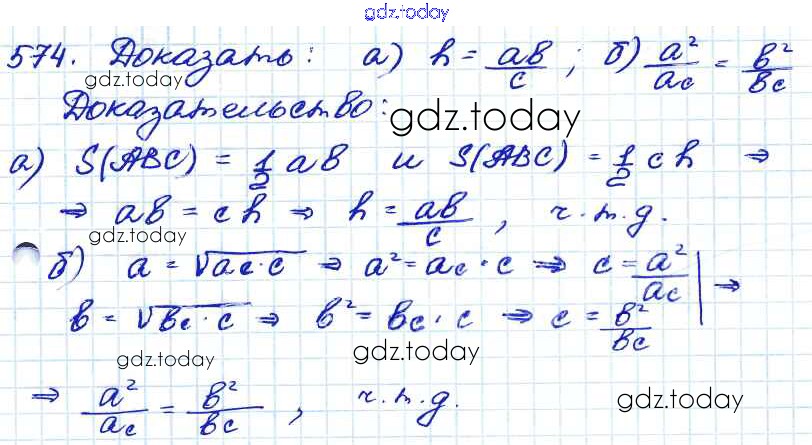 gdz.today
574. Доказать: а) h = ab/c ; б) a²/a_c = b²/b_c
gdz.today
Доказательство:
gdz.today
а) S(ABC) = 1/2 ab и S(ABC) = 1/2 ch ⇒
⇒ ab = ch ⇒ h = ab/c , ч.т.д.
gdz.today
б) a = √(a_c · c) ⇒ a² = a_c · c ⇒ c = a²/a_c | ⇒
b = √(b_c · c) ⇒ b² = b_c · c ⇒ c = b²/b_c
gdz.today gdz.today
⇒ a²/a_c = b²/b_c , ч.т.д.
gdz.today